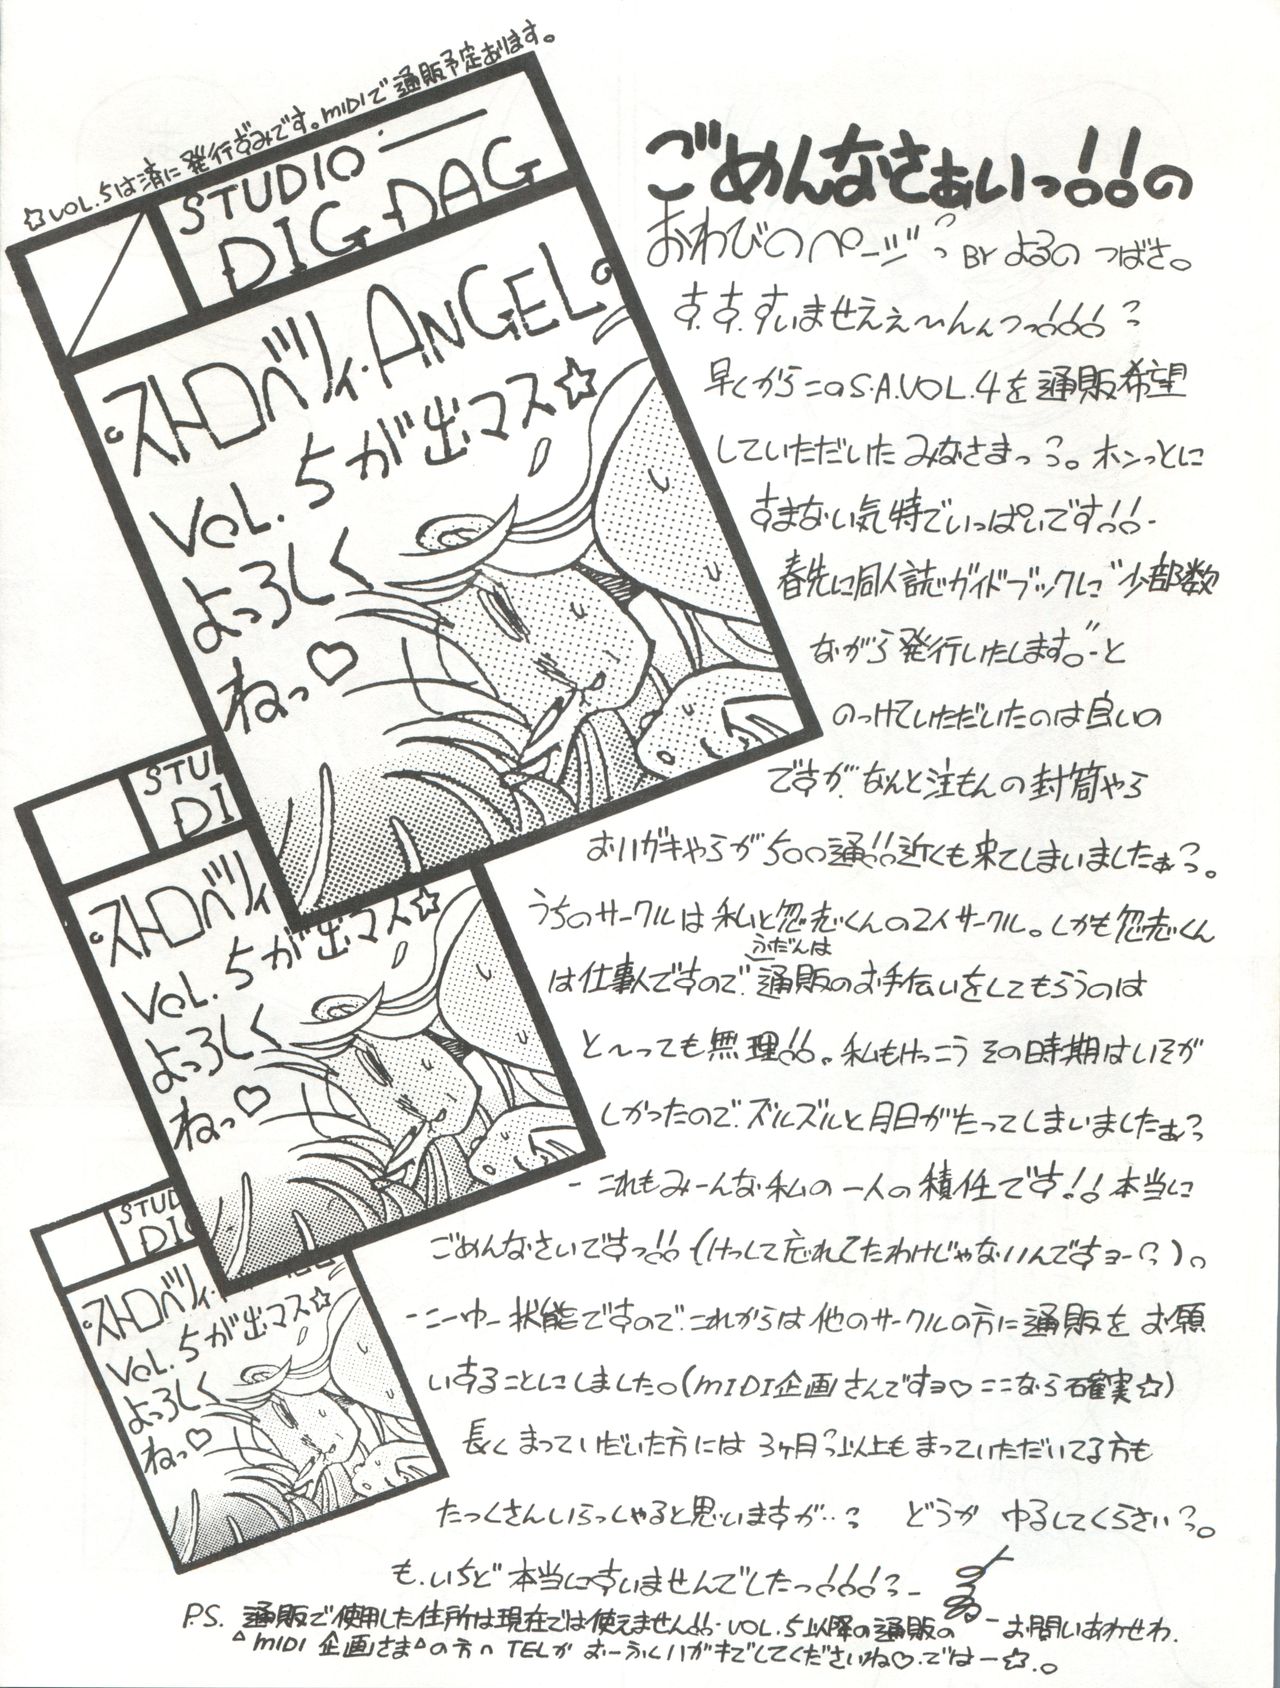 ☆VOL.5は済に発行ずみです。MIDIで通販予定おります。
STUDIO
DIG DAG
ストロベリィ・ANGEL。
VOL.5が出マス☆
よっろしく
ねっ♡
STU
DI
ストロベリィ
VOL.5が出マス☆
よっろしく
ねっ♡
STUD
DIG
ストロベリィ・
VOL.5が出マス☆
よっろしく
ねっ♡
ごめんなさぁいっ!!の
おわびのページっ BY よるの つばさ。
す.す.すいませえぇ〜んんっっ!!!っ
早くからこのS.A.VOL.4を通販希望
していただいたみなさまっっ。ホンっとに
すまない気特でいっぱいです!!-
春先に同人誌ガイドブックに"少部数
ながら発行いたします。"-と
のっけていただいたのは良いの
ですが、なんと注もんの封筒やら
おハガキやらが500通!!近くも来てしまいましたぁっ。
うちのサークルは私と忽志くんの2人サークル。しかも忽志くん
は仕事人ですので、通販のお手伝いをしてもらうのは
ふだんは
と〜っても無理!!。私もけっこうその時期はいそが
しかったので、ズルズルと月日がたってしまいましたぁっ
-これもみーんな私の一人の積任です!!本当に
ごめんなさいですっ!!(けっして忘れてたわけじゃないんですョーっ)。
-こーゆー状能ですので、これからは他のサークルの方に通販をお願
いすることにしました。(MIDI企画さんですョ♡ここなら確実☆)
長くまっていだいた方には3ヶ月っ以上もまっていただいてる方も
たっくさんいらっしゃると思いますが..っ どうか ゆるしてくらさいっ。
も.いちど本当にすいませんでしたっ!!!っ-
P.S. 通販で使用した住所は現在では使えません!!.VOL.5以降の通販の -お問いあわせわ.
△MIDI 企画さま△の方へTELか おーふくハガキでしてくださいね♡.ではー☆.。